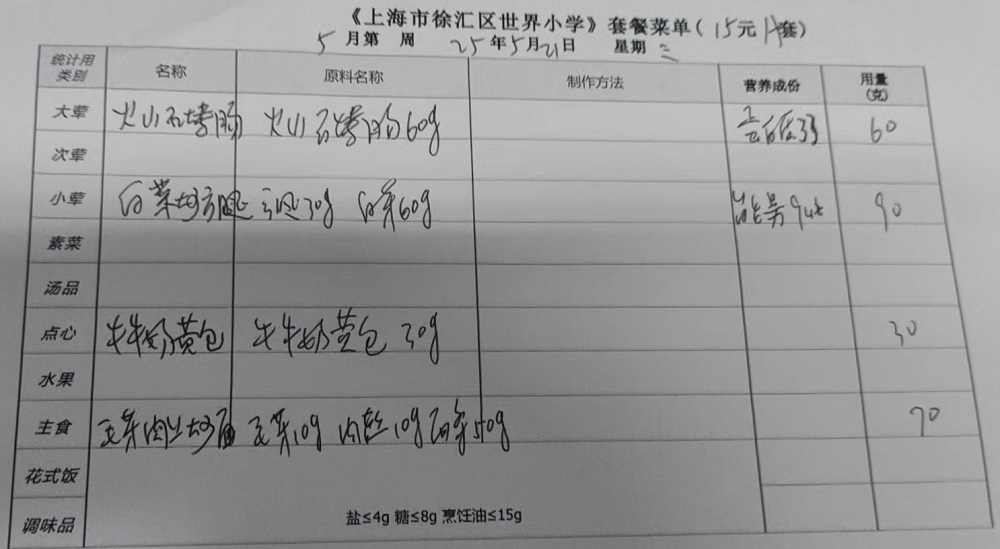 《上海市徐汇区世界小学》套餐菜单(15元 套)
5月第 周 25年5月21日 星期三
统计用类别 名称 原料名称 制作方法 营养成份 用量(克)
大荤 火山石烤肠 火山石烤肠60g 60
次荤
小荤 白菜 30g 白菜60g 90
素菜
汤品
点心 牛牛奶黄包 牛牛奶黄包 30g 30
水果
主食 肉丝 10g 肉丝10g 50g 70
花式饭
调味品 盐≤4g 糖≤8g 烹饪油≤15g